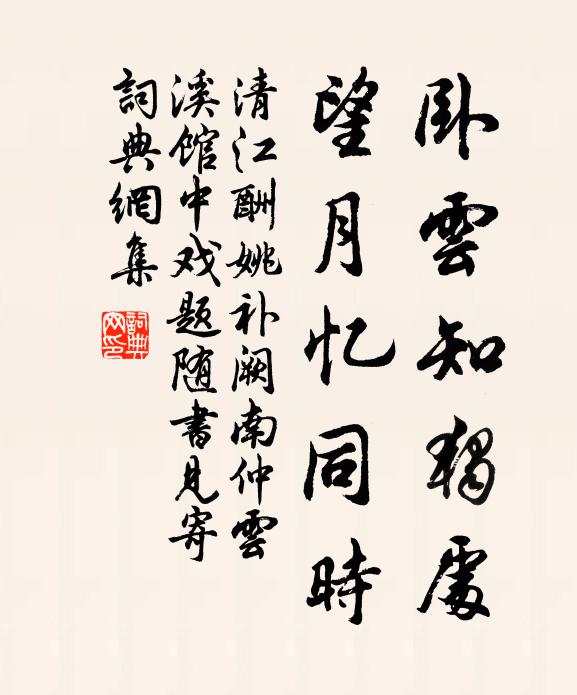 卧雲知獨處
望月忆同時
清江酬姚补阙南仲雲
溪馆中戏题随書见寄
詞典網集
詞典
网印